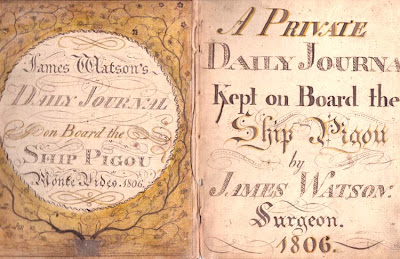 James Watson's
DAILY JOURNAL
on Board the
SHIP PIGOU
Monte Video. 1806.
A PRIVATE
DAILY JOURNA
Kept on Board the
Ship Pigou
by
JAMES WATSON:
Surgeon.
1806.